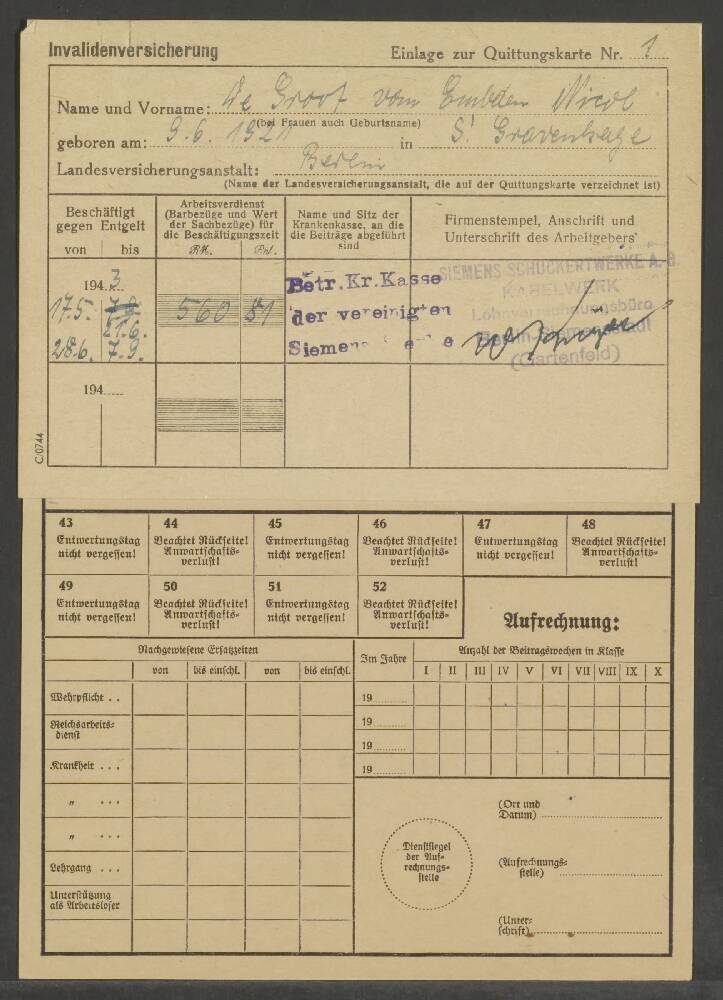 Invalidenversicherung
Einlage zur Quittungskarte Nr. 1
Name und Vorname: de Groot van Embden Nicol
(bei Frauen auch Geburtsname)
geboren am: 9.6.1921 in S'Gravenhage
Landesversicherungsanstalt: Berlin
(Name der Landesversicherungsanstalt, die auf der Quittungskarte verzeichnet ist)
Beschäftigt gegen Entgelt
von bis
Arbeitsverdienst (Barbezüge und Wert der Sachbezüge) für die Beschäftigungszeit
RM. Pf.
Name und Sitz der Krankenkasse, an die die Beiträge abgeführt sind
Firmenstempel, Anschrift und Unterschrift des Arbeitgebers
194 3
17.5. 21.6.
28.6. 7.9.
560 81
Betr.Kr.Kasse
der vereinigten
Siemens
SIEMENS-SCHUCKERTWERKE A.-G.
KABELWERK
Lohnverrechnungsbüro
Berlin-Siemensstadt
(Gartenfeld)
194
C/0744
43 Entwertungstag nicht vergessen!
44 Beachtet Rückseite! Anwartschaftsverlust!
45 Entwertungstag nicht vergessen!
46 Beachtet Rückseite! Anwartschaftsverlust!
47 Entwertungstag nicht vergessen!
48 Beachtet Rückseite! Anwartschaftsverlust!
49 Entwertungstag nicht vergessen!
50 Beachtet Rückseite! Anwartschaftsverlust!
51 Entwertungstag nicht vergessen!
52 Beachtet Rückseite! Anwartschaftsverlust!
Aufrechnung:
Nachgewiesene Ersatzzeiten
von bis einschl. von bis einschl.
Wehrpflicht . .
Reichsarbeitsdienst
Krankheit . . .
" . . .
" . . .
Lehrgang . . .
Unterstützung als Arbeitsloser
Im Jahre
Anzahl der Beitragswochen in Klasse
I II III IV V VI VII VIII IX X
19
19
19
19
Dienstsiegel der Aufrechnungsstelle
(Ort und Datum)
(Aufrechnungsstelle)
(Unterschrift)